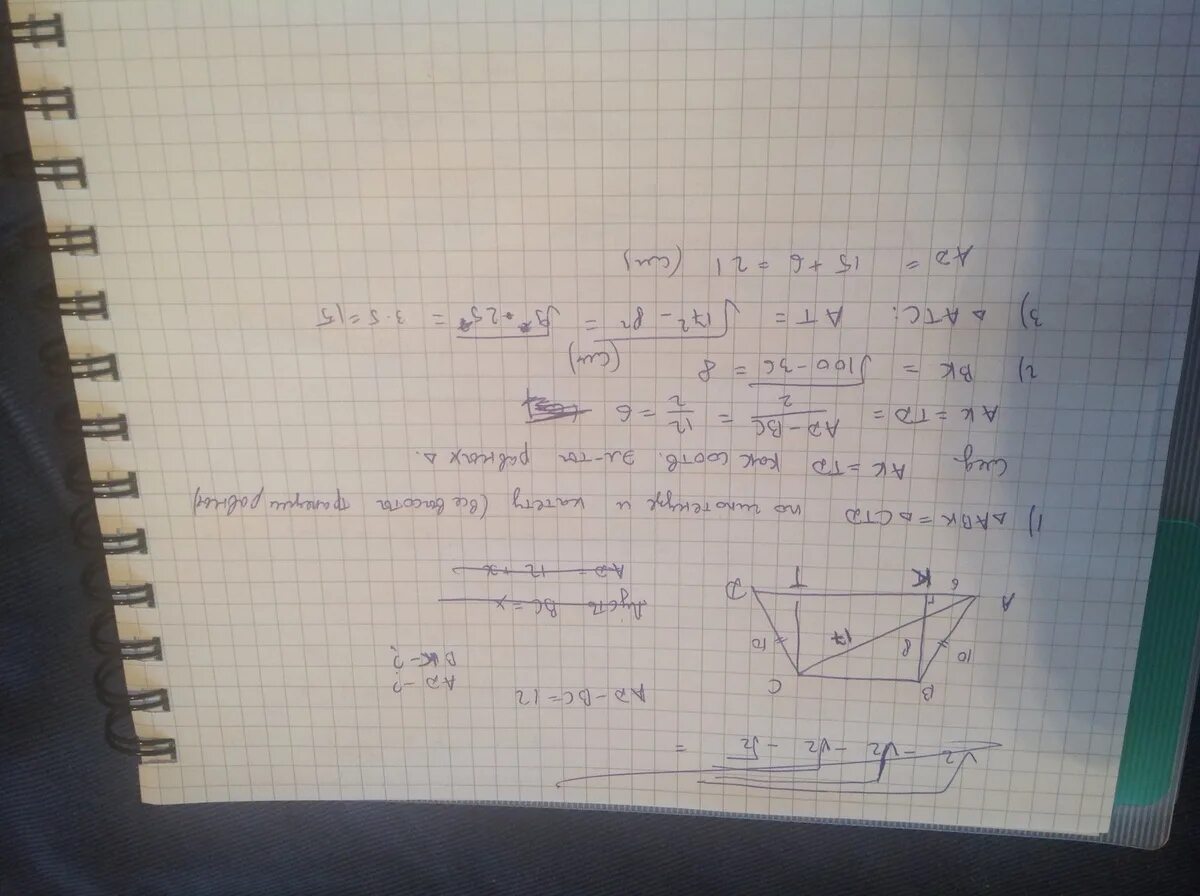 √2 - √2 - √2 - √2 =
B C
10 8 17 10
A 6 K T D
AD - BC = 12
AD - ?
BK - ?
Пусть BC = x
AD = 12 + x
1) △ABK = △CTD по гипотенузе и катету (все высоты трапеции равны)
след AK = TD как соотв. эл-ты равных △.
AK = TD = AD - BC / 2 = 12/2 = 6
2) BK = √100 - 36 = 8 (см)
3) △ATC: AT = √17² - 8² = √9 · 25 = 3·5 = 15
AD = 15 + 6 = 21 (см)